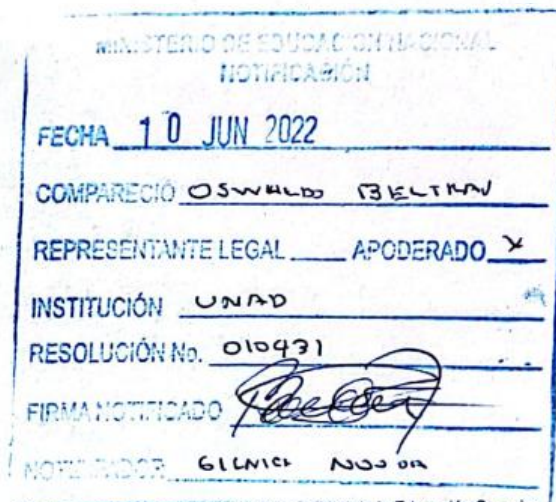 MINISTERIO DE EDUCACIÓN NACIONAL
NOTIFICACIÓN
FECHA 10 JUN 2022
COMPARECIÓ OSWALDO BELTRAN
REPRESENTANTE LEGAL ____ APODERADO X
INSTITUCIÓN UNAD
RESOLUCIÓN No. 010431
FIRMA NOTIFICADO
NOTIFICADOR